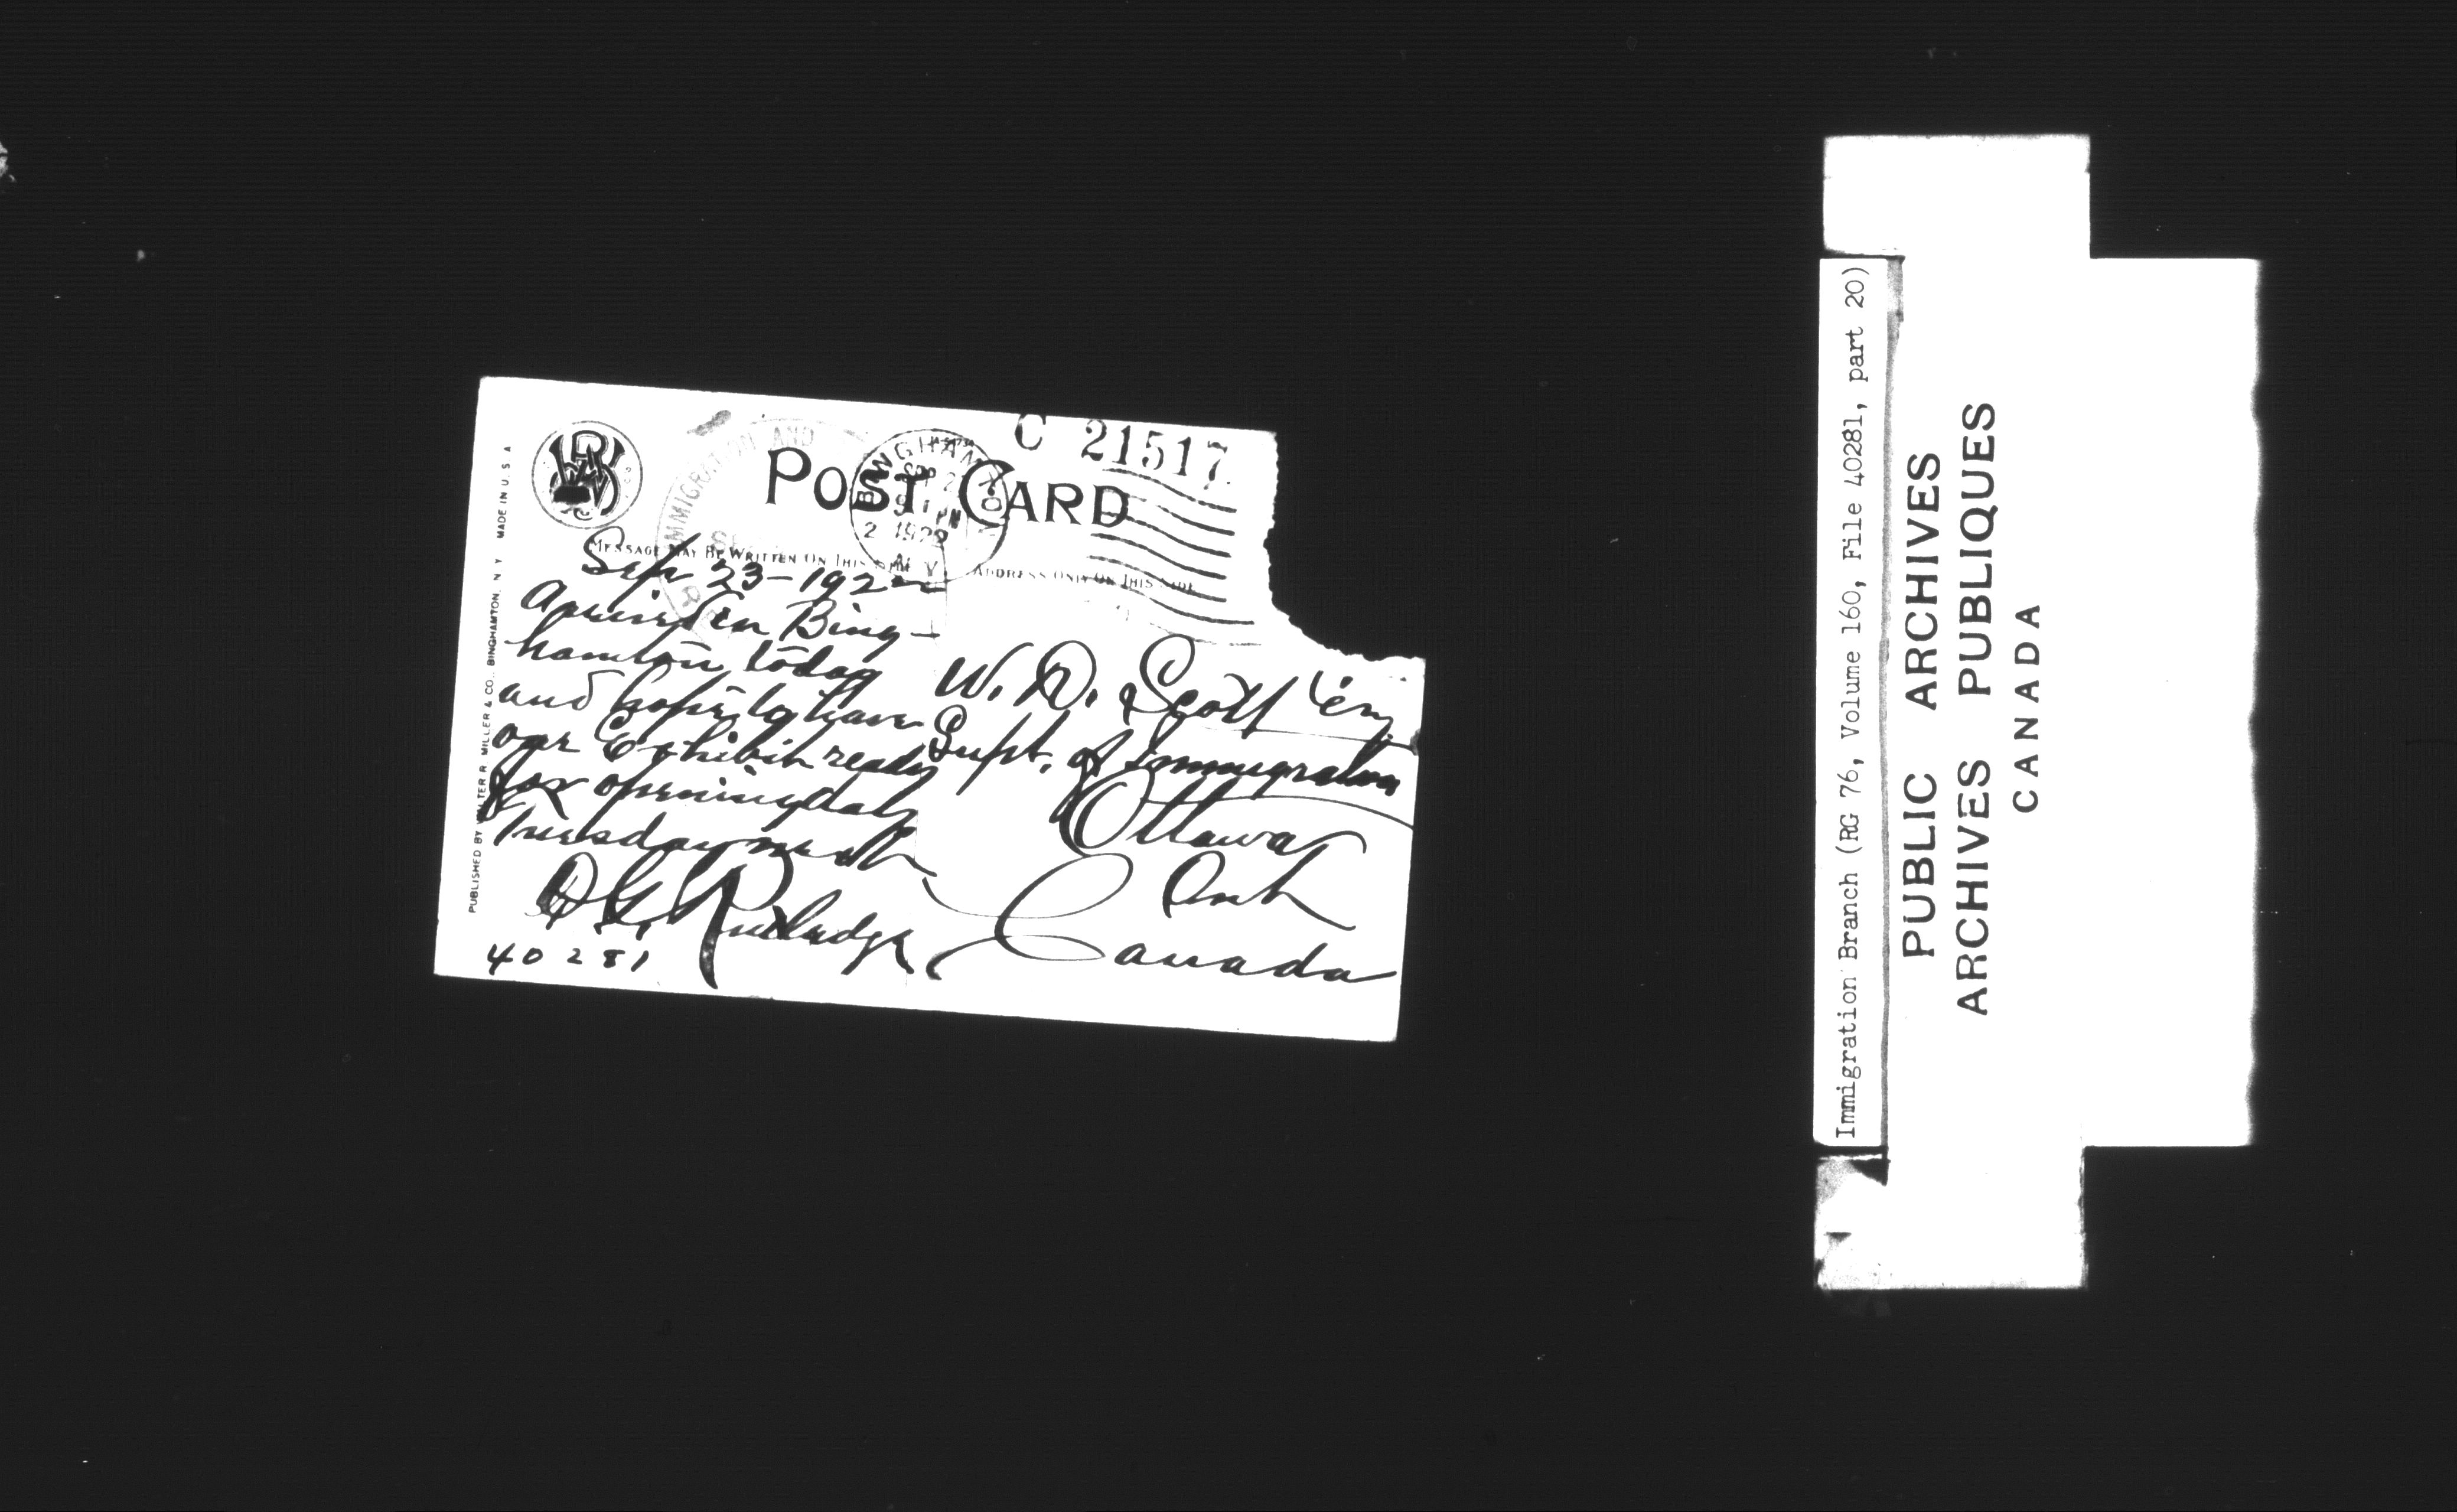 C 21517
POST CARD
IMMIGRATION AND
BINGHAMTON
SEP 2
9 1 PM
1922
N.Y.
MESSAGE MAY BE WRITTEN ON THIS SIDE
ADDRESS ONLY ON THIS SIDE
PUBLISHED BY WALTER R MILLER & CO., BINGHAMTON, N Y MADE IN U.S.A
Sep 23-1922
Arrived in Bing-
hamton today
and hope to have
our Exhibit ready
for opening day
Tuesday next
Rutledge
40281
W. D. Scott Esq
Supt. of Immigration
Ottawa
Ont
Canada
Immigration Branch (RG 76, Volume 160, File 40281, part 20)
PUBLIC ARCHIVES
ARCHIVES PUBLIQUES
CANADA